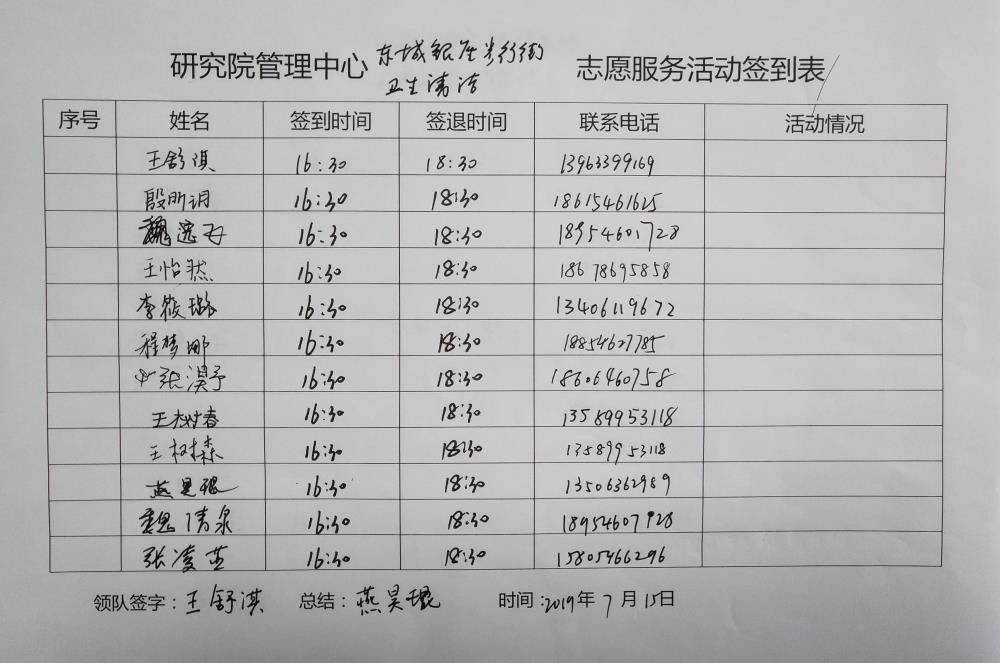 研究院管理中心 东城银座步行街 卫生清洁 志愿服务活动签到表
序号 姓名 签到时间 签退时间 联系电话 活动情况
王舒淇 16:30 18:30 13963399169
殷昕明 16:30 18:30 18615461625
魏 16:30 18:30 18954601728
王怡然 16:30 18:30 18678695858
李筱璐 16:30 18:30 13406119672
程梦娜 16:30 18:30 18854627785
张淏予 16:30 18:30 18606460758
王树春 16:30 18:30 13589953118
王树森 16:30 18:30 13589953118
燕昊琨 16:30 18:30 13506362989
魏清泉 16:30 18:30 18954607928
张凌 16:30 18:30 15805466296
领队签字：王舒淇 总结：燕昊琨 时间：2019年7月15日